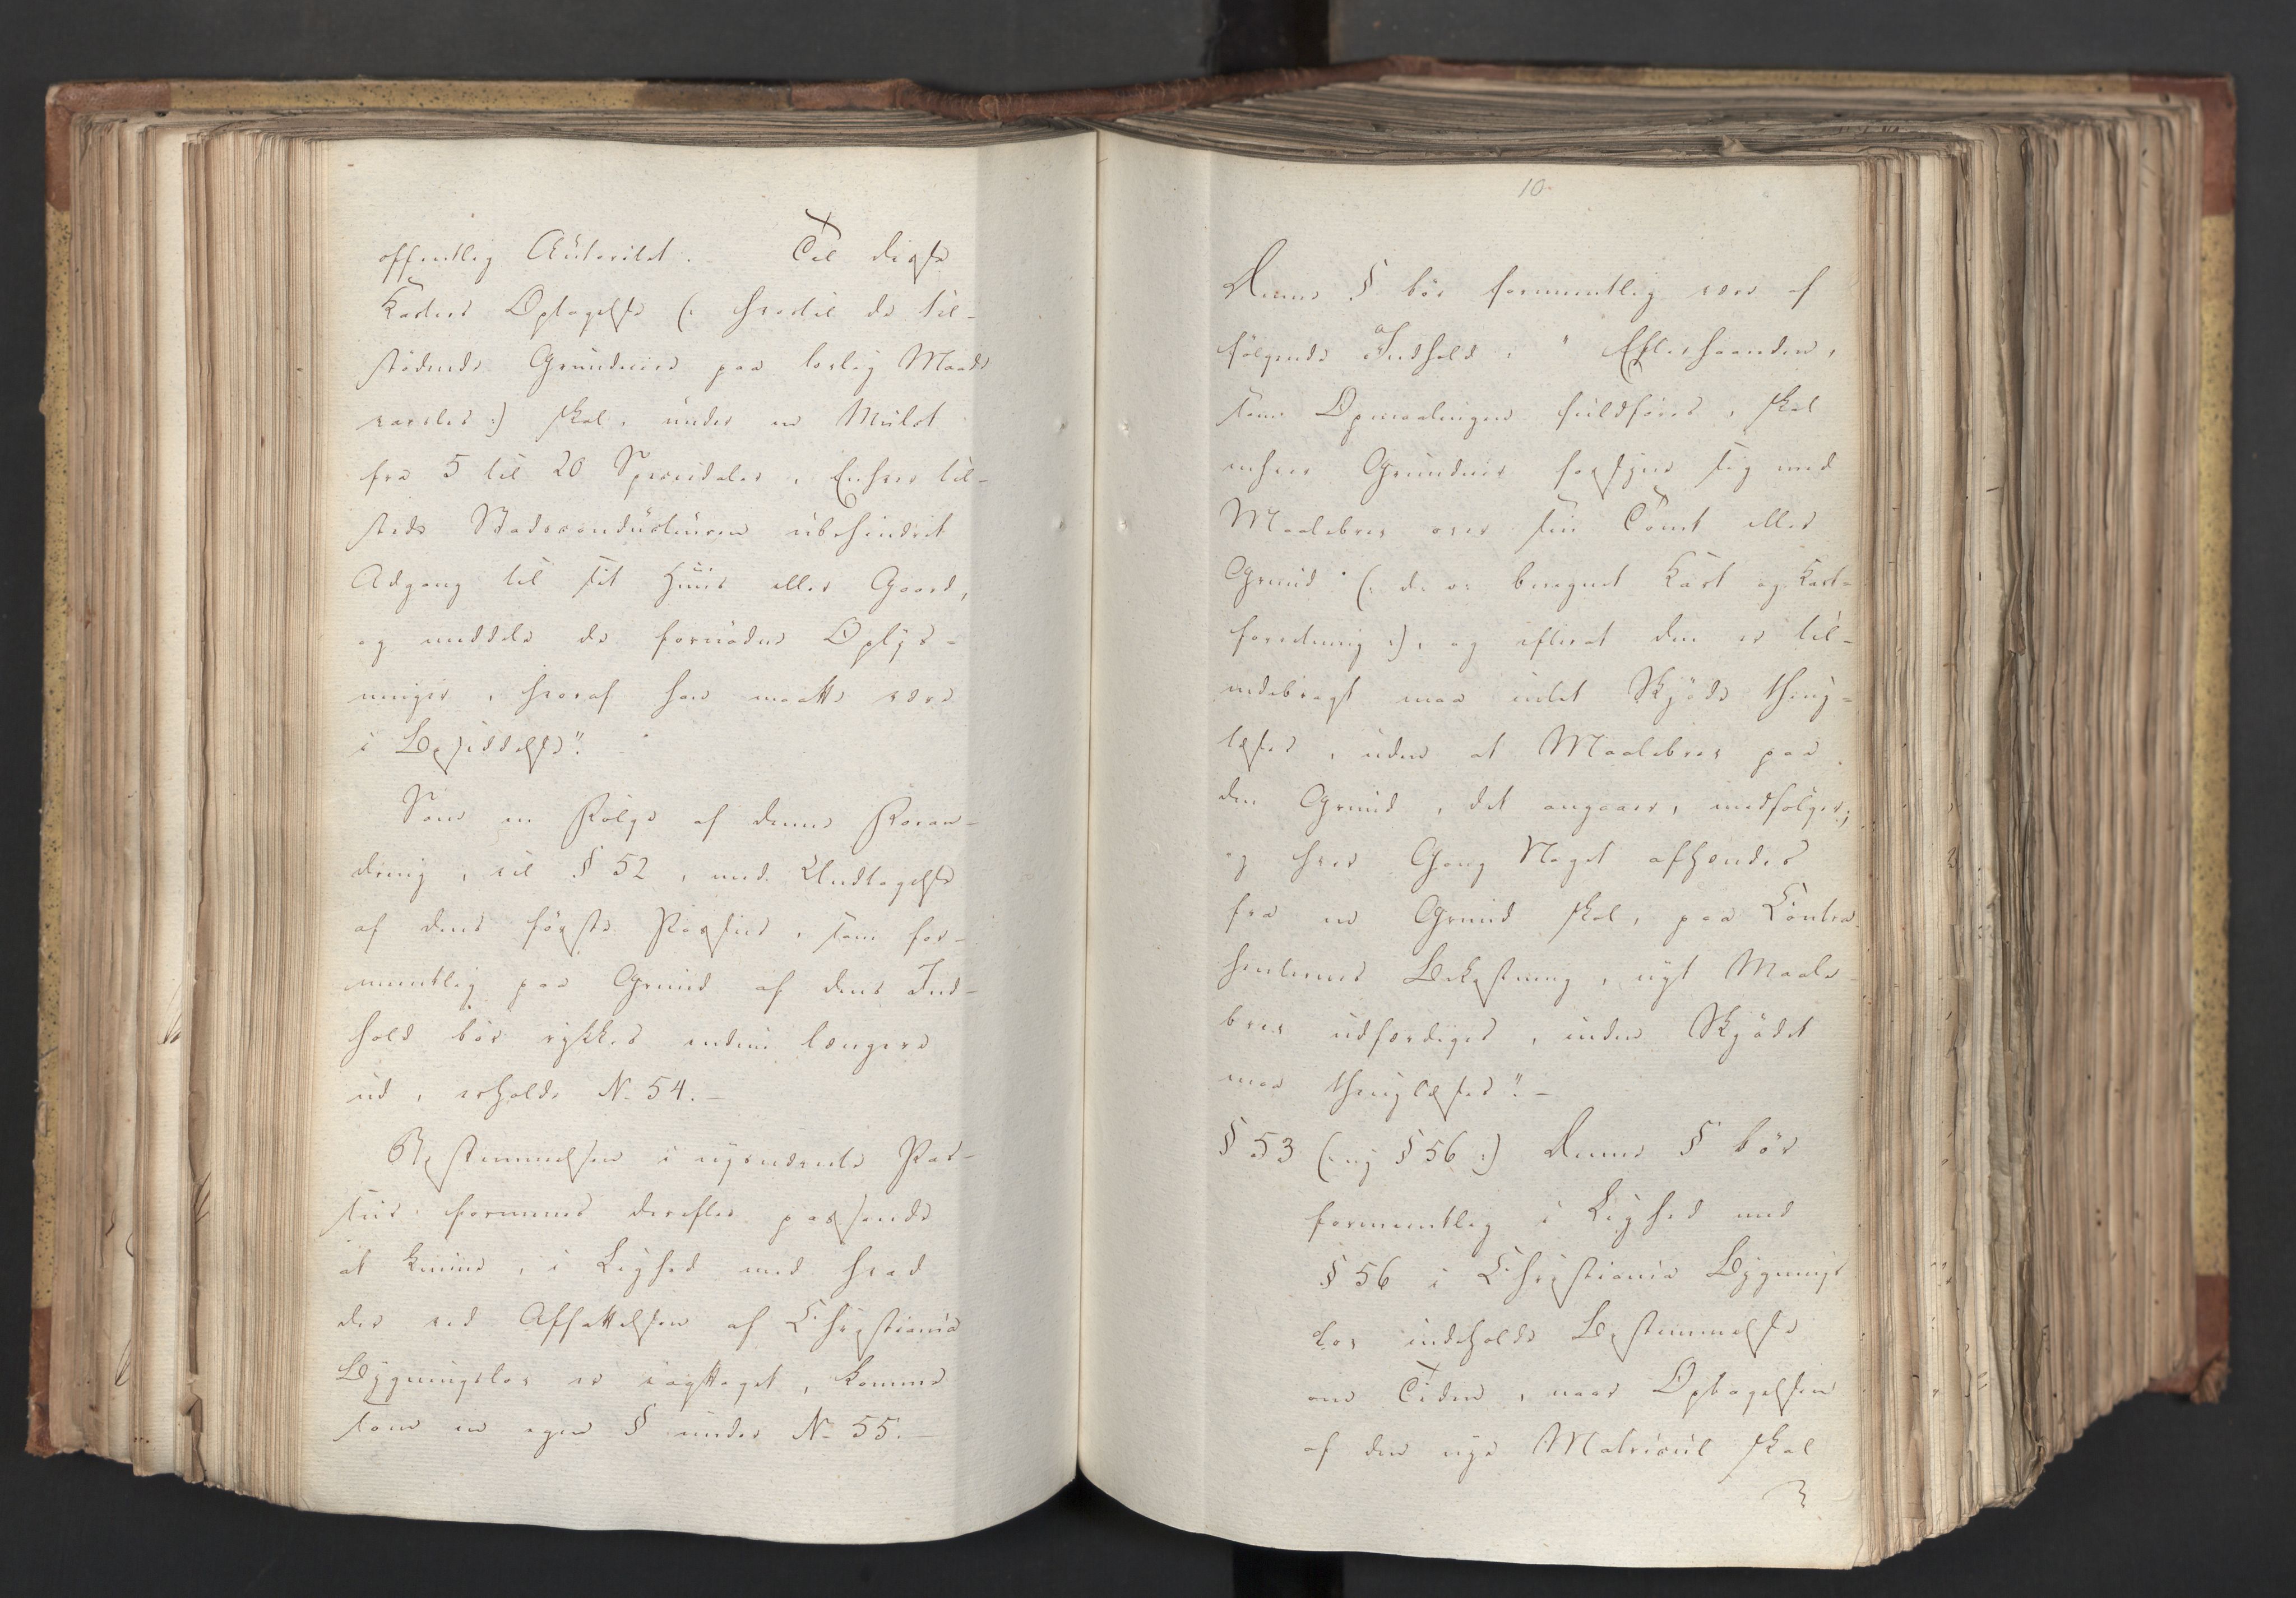 offentlig Autoritet. Til disse
Karters Optagelse (: hvortil de til-
stødende Grundeiere paa lovlig Maade
varsles :) skal, under en Mulct
fra 5 til 20 Speciedaler, Enhver til-
stede Stadsconducteuren ubehindret
Adgang til sit Huus eller Gaard,
og meddele de fornødne Oplys-
ninger, hvoraf han maatte være
i Besiddelse".
Som en Følge af denne Foran-
dring, vil § 52, med Undtagelse
af dens første Passus, som for-
mentlig paa Grund af dens Ind-
hold bør rykkes endnu længere
ud, erholde No 54. -
Bestemmelsen i nysnævnte Pas-
sus formenes derefter passende
at kunne, i Liighed med hvad
der ved Affattelsen af Christiania
Bygningslov er iagttaget, komme
som en egen § under No 55. -
10
Denne § bør formentlig være af
følgende Indhold: " Efterhaanden,
som Opmaalingen fuldføres, skal
enhver Grundeier forsyne sig med
Maalebrev over sin Tomt eller
Grund (: d: v: beregnet Kart og Kart-
forretning :), og efterat den er til-
endebragt maa intet Skjøde thing-
læses, uden at Maalebrev paa
den Grund, det angaaer, medfølger;
og hver Gang Noget afhændes
fra en Grund skal, paa Contra-
henternes Bekostning, nyt Maale-
brev udfærdiges, inden Skjødet
maa thinglæses". -
§ 53 (: ny § 56 :) Denne § bør
formentlig i Liighed med
§ 56 i Christiania Bygnings
Lov indeholde Bestemmelse
om Tiden, naar Optagelsen
af den nye Matricul skal